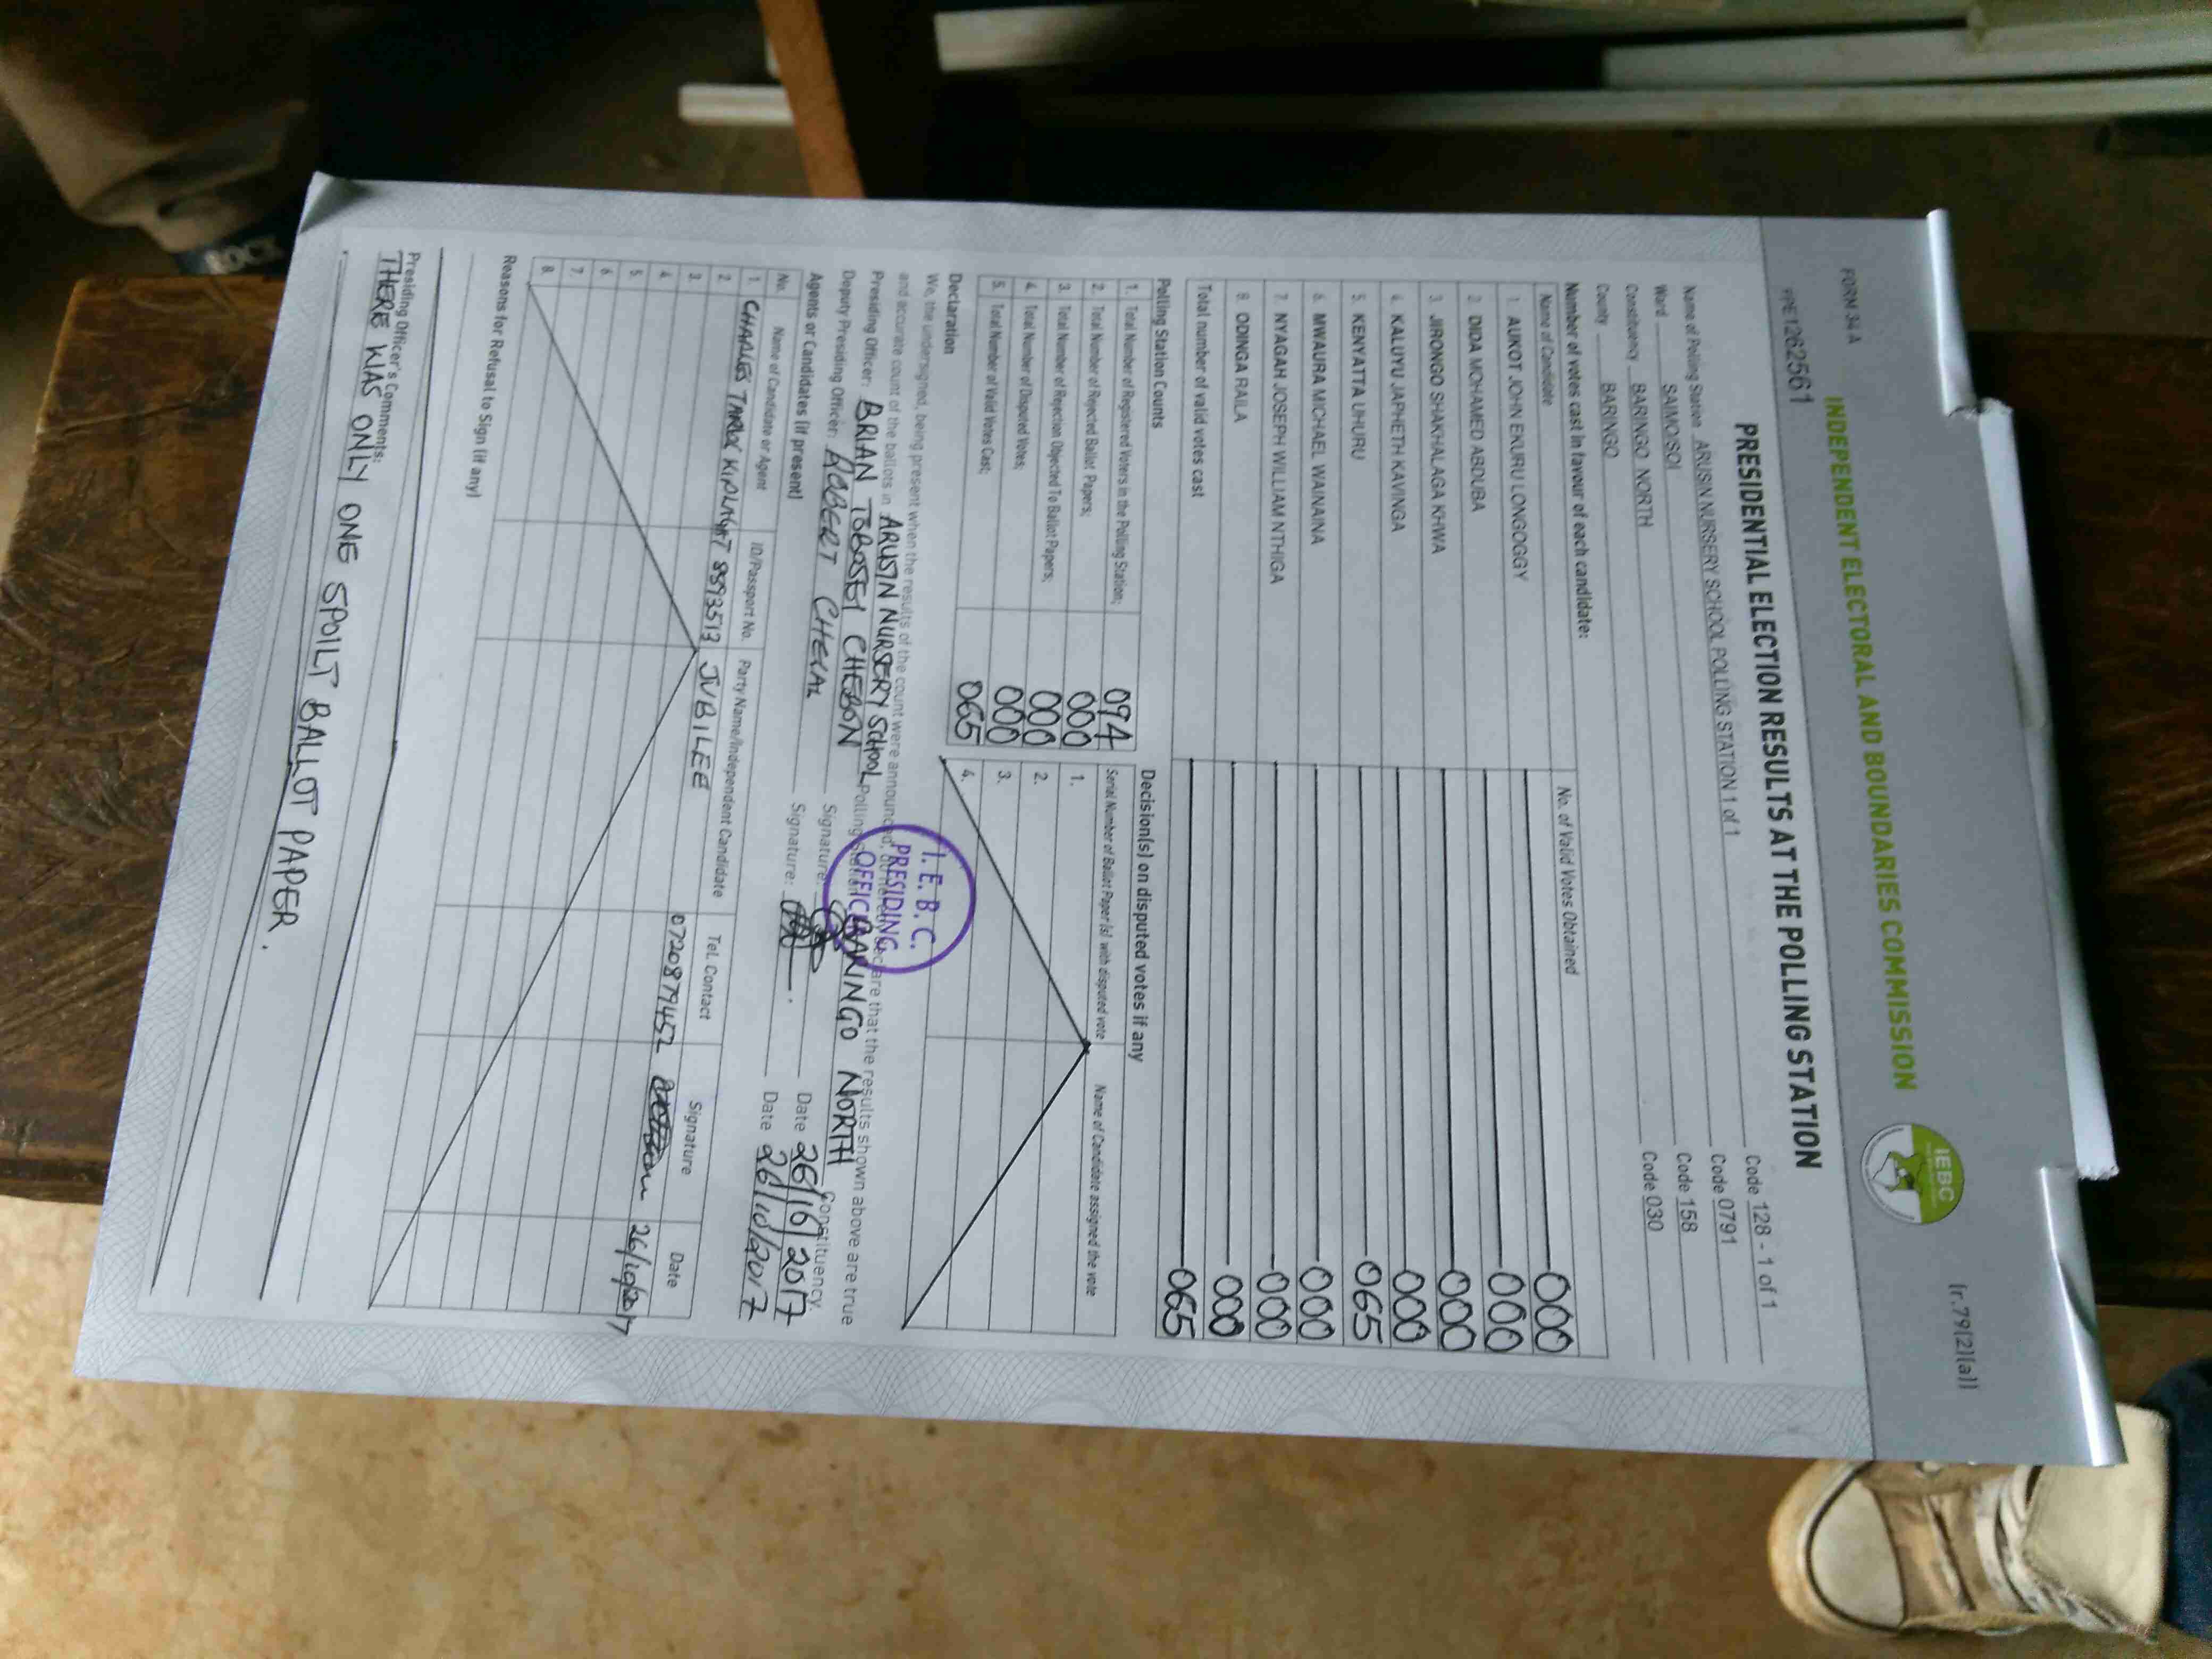 FORM 34 A
(r.79(2)(a))
INDEPENDENT ELECTORAL AND BOUNDARIES COMMISSION
IEBC
PPE 1262561
PRESIDENTIAL ELECTION RESULTS AT THE POLLING STATION
Name of Polling Station ARUSIN NURSERY SCHOOL POLLING STATION 1 of 1 Code 128 - 1 of 1
Ward SAIMO/SOI Code 0791
Constituency BARINGO NORTH Code 158
County BARINGO Code 030
Number of votes cast in favour of each candidate:
Name of Candidate No. of Valid Votes Obtained
1. AUKOT JOHN EKURU LONGOGGY 000
2. DIDA MOHAMED ABDUBA 000
3. JIRONGO SHAKHALAGA KHWA 000
4. KALUYU JAPHETH KAVINGA 000
5. KENYATTA UHURU 065
6. MWAURA MICHAEL WAINAINA 000
7. NYAGAH JOSEPH WILLIAM NTHIGA 000
8. ODINGA RAILA 000
Total number of valid votes cast 065
Polling Station Counts
1. Total Number of Registered Voters in the Polling Station; 094
2. Total Number of Rejected Ballot Papers; 000
3. Total Number of Rejection Objected To Ballot Papers; 000
4. Total Number of Disputed Votes; 000
5. Total Number of Valid Votes Cast; 065
Decision(s) on disputed votes if any
Serial Number of Ballot Paper (s) with disputed vote Name of Candidate assigned the vote
1.
2.
3.
4.
Declaration
We, the undersigned, being present when the results of the count were announced, do hereby declare that the results shown above are true
and accurate count of the ballots in ARUSIN NURSERY SCHOOL Polling Station BARINGO NORTH Constituency.
I.E.B.C.
PRESIDING
OFFICER
Presiding Officer: BRIAN TOBOSEI CHEBON Signature: Date 26/10/2017
Deputy Presiding Officer: ROBERT Signature: Date 26/10/2017
Agents or Candidates (if present)
No. Name of Candidate or Agent ID/Passport No. Party Name/Independent Candidate Tel. Contact Signature Date
1. CHARLES 8593513 JUBILEE 0720879452 26/10/2017
2.
3.
4.
5.
6.
7.
8.
Reasons for Refusal to Sign (if any)
Presiding Officer's Comments:
THERE WAS ONLY ONE SPOILT BALLOT PAPER.